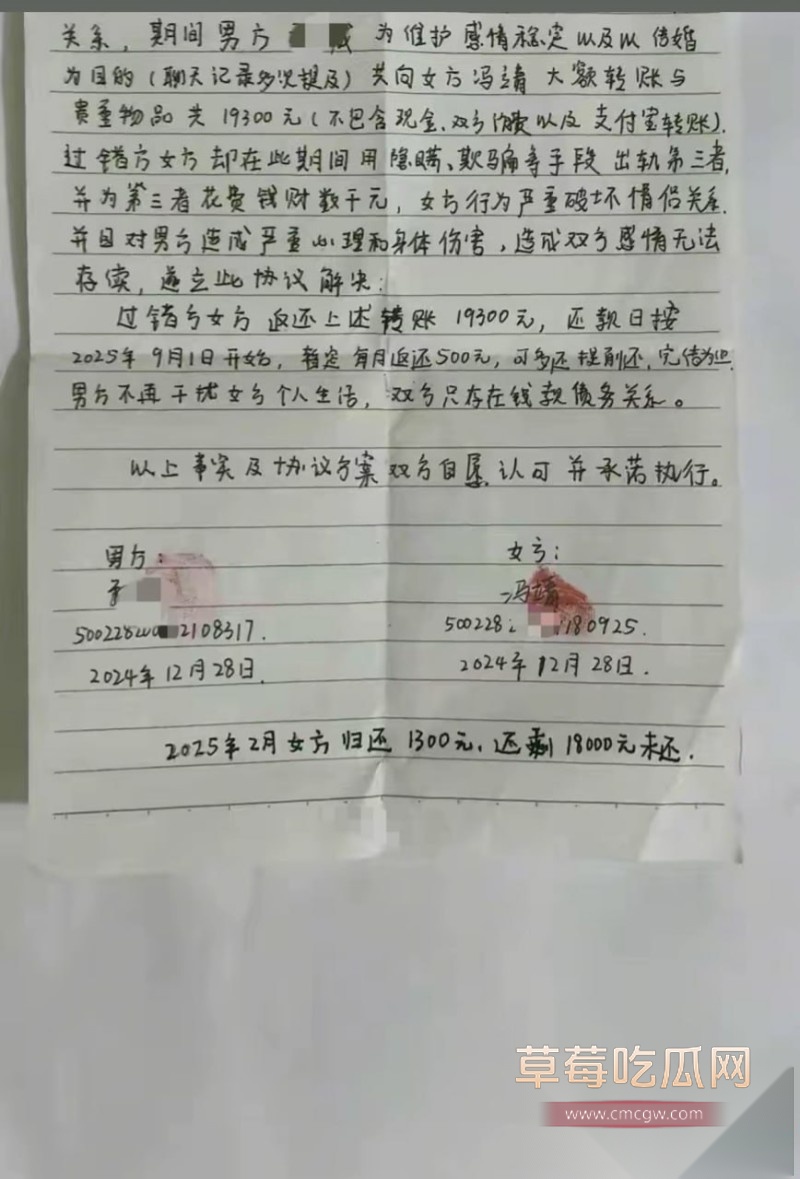 关系，期间男方 成 为维护感情稳定以及以结婚
为目的（聊天记录多次提及）共向女方冯靖 大额转账与
贵重物品共19300元（不包含现金、双方消费以及支付宝转账）.
过错方女方却在此期间用隐瞒、欺骗等手段出轨第三者,
并为第三者花费钱财数千元，女方行为严重破坏情侣关系.
并且对男方造成严重心理和身体伤害，造成双方感情无法
存续，遂立此协议解决:
过错方女方返还上述转账19300元，还款日按
2025年9月1日开始，暂定每月返还500元，可多还提前还，完结为止.
男方不再干扰女方个人生活，双方只存在钱款债务关系。
以上事实及协议方案双方自愿认可并承诺执行。
男方：
女方：
冯靖
500228 2108317.
500228 180925.
2024年12月28日.
2024年12月28日.
2025年2月女方归还1300元，还剩18000元未还.
草莓吃瓜网
www.cmcgw.com